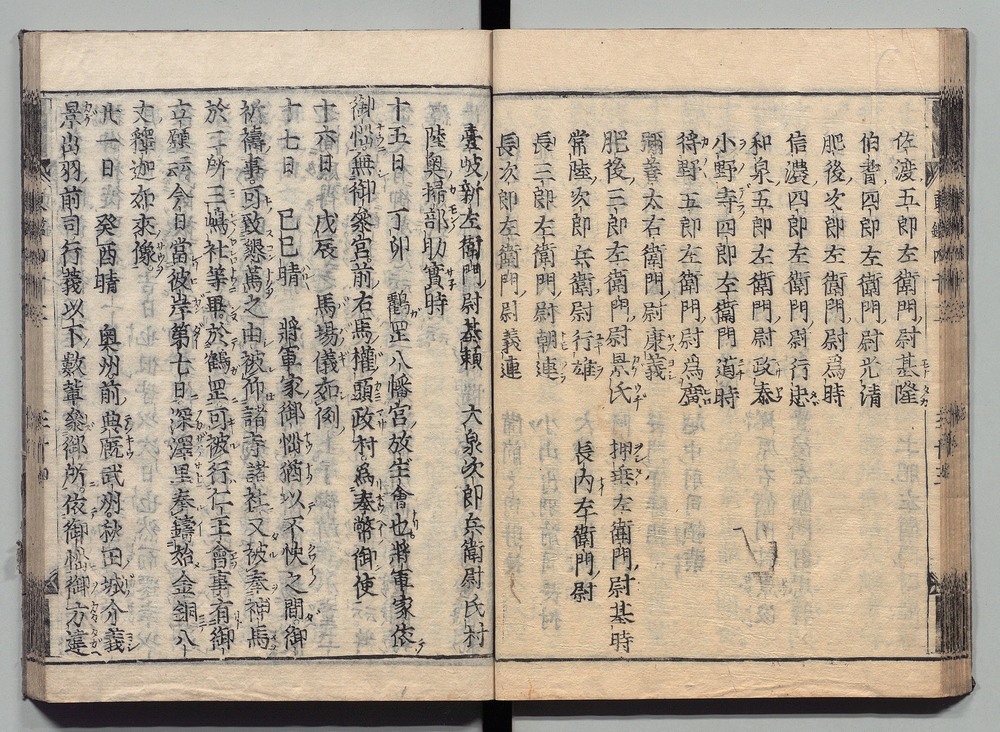 佐渡五郎左衛門尉基隆
伯耆四郎左衛門尉光清
肥後次郎左衛門尉爲時
信濃四郎左衛門尉行忠
和泉五郎左衛門尉政泰
小野寺四郎左衛門道時
狩野五郎左衛門尉爲廣
彌善太右衛門尉康義
肥後三郎左衛門尉景氏 押垂左衛門尉基時
常陸次郎兵衛尉行雄 長内左衛門尉
長三郎左衛門尉朝連
長次郎左衛門尉義連
壹岐新左衛門尉基頼 大泉次郎兵衛尉氏村
陸奥掃部助實時
十五日 丁卯 鶴罡八幡宮放生會也將軍家依
御悩無御參宮前右馬權頭政村爲奉幣御使
十六日 戊辰 馬場儀如例
十七日 己巳晴 將軍家御悩猶以不快之間御
祈禱事可致懇篤之由被仰諸寺諸社又被奉神馬
於二所三嶋社等畢於鶴罡可被行仁王會事有御
立願云今日當彼岸第七日深澤里奉鑄始金銅八
丈釋迦如來像
廿一日 癸酉晴 奥州前典厩武州秋田城介義
景出羽前司行義以下數輩參御所依御悩御方違